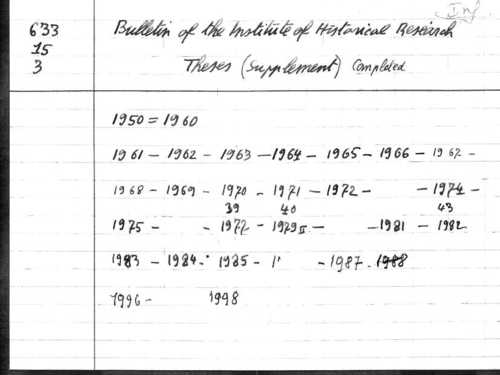 Inf
633 Bulletin of the Institute of Historical Research
15
3 Theses (Supplement) Completed
1950 = 1960
1961 - 1962 - 1963 - 1964 - 1965 - 1966 - 1967 -
1968 - 1969 - 1970 - 1971 - 1972 - - 1974 -
39 40 43
1975 - - 1977 - 1979 II - - 1981 - 1982
1983 - 1984 - 1985 - 1' - 1987 - 1988
1996 - 1998